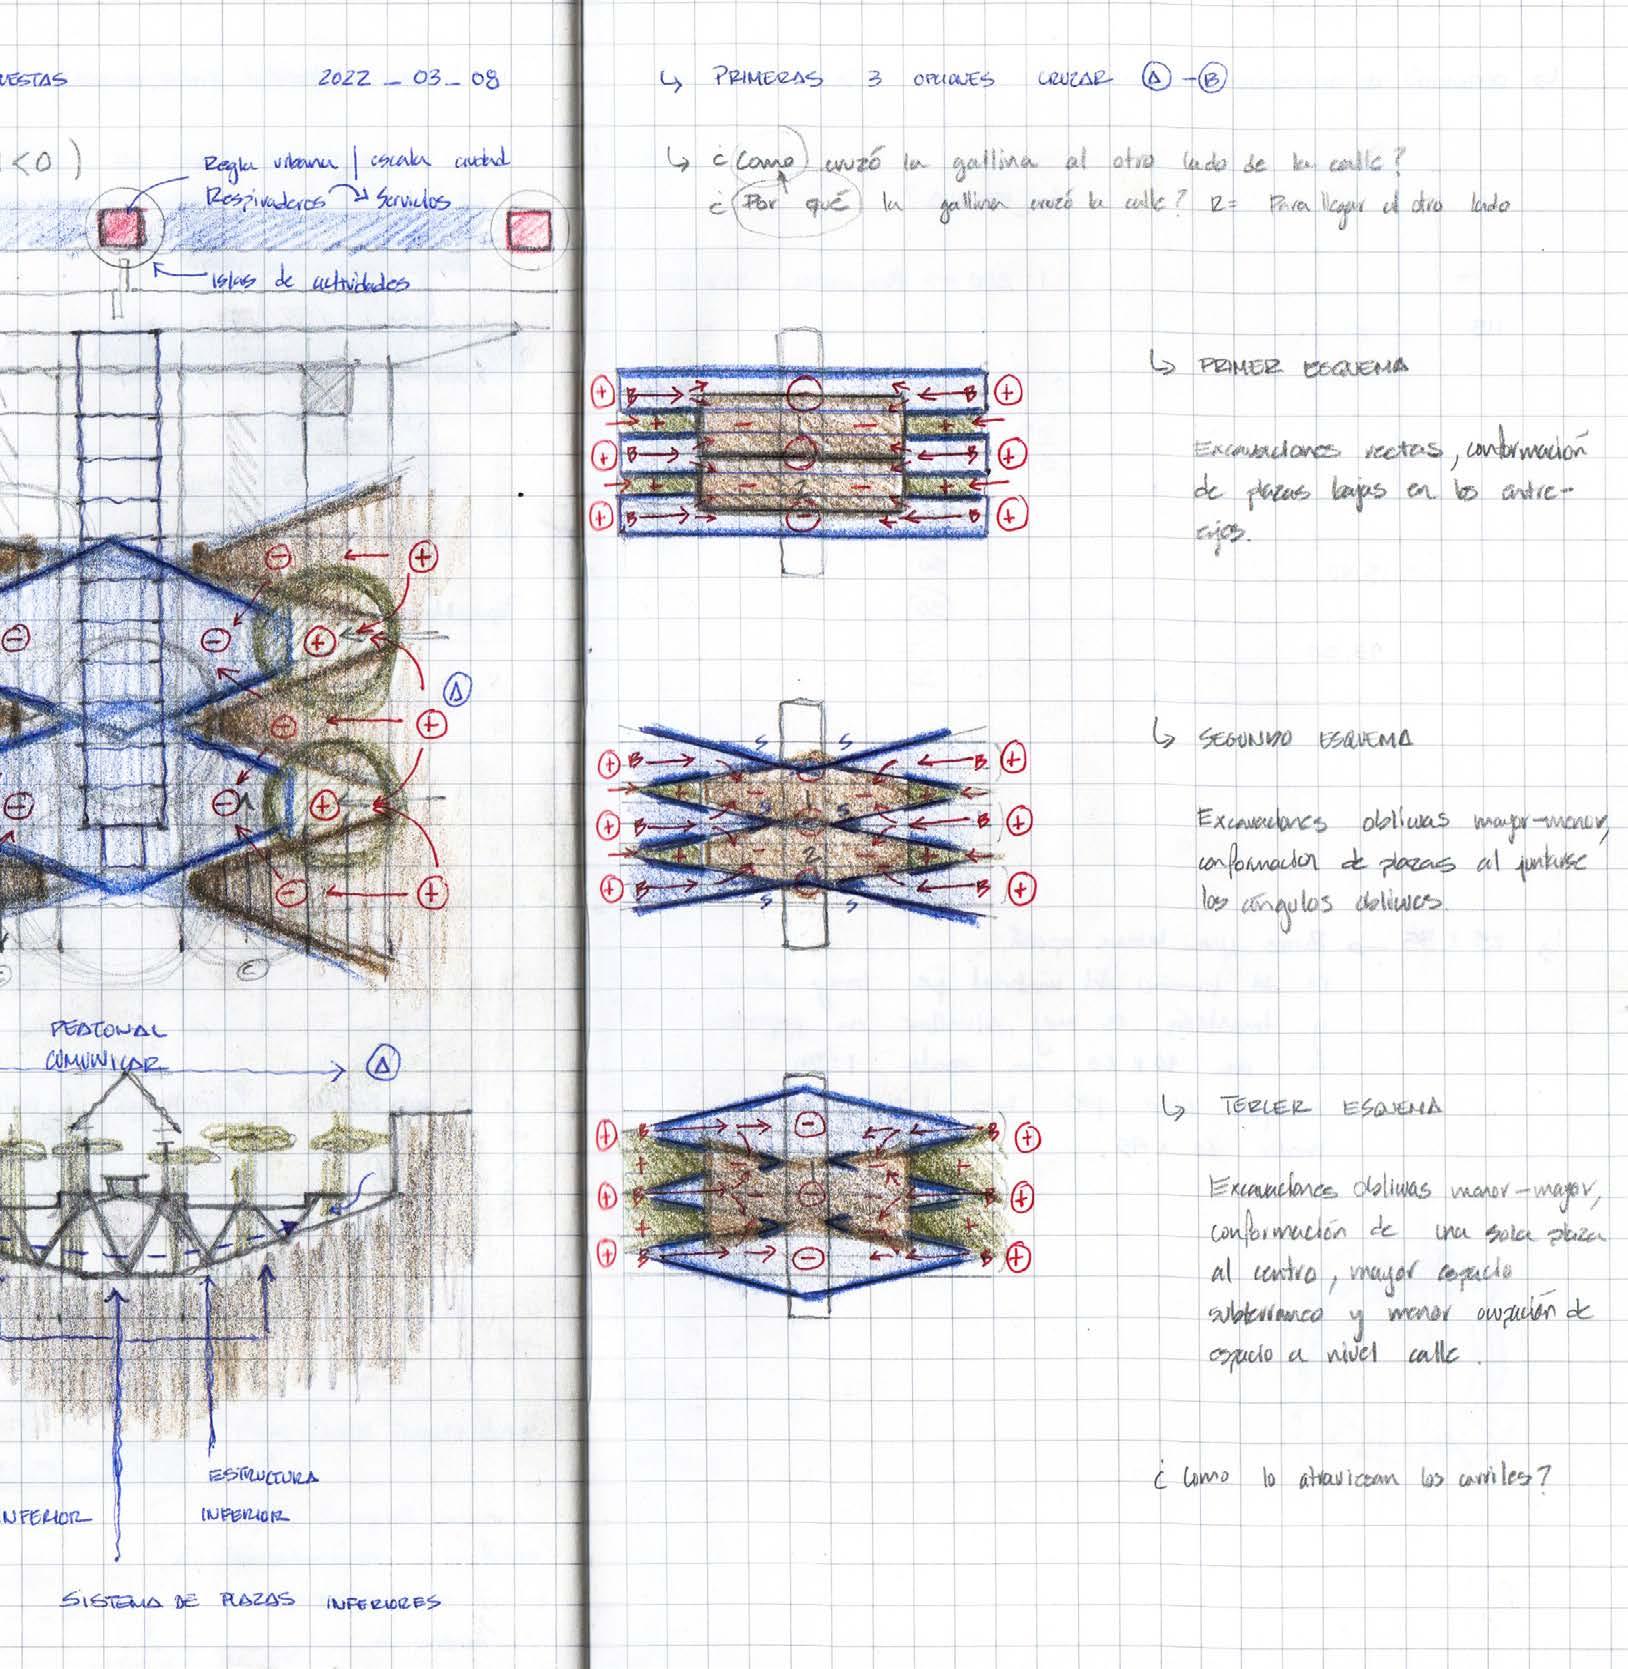 UESTAS 2022_03_08
<0)
Regla urbana | escala ciudad
Respiraderos Servicios
Islas de actividades
A
C
PEATONAL
COMUNICAR
A
ESTRUCTURA
INFERIOR
NFERIOR
SISTEMA DE PLAZAS INFERIORES
↳ PRIMERAS 3 OPCIONES CRUZAR A - B
↳ ¿Como cruzó la gallina al otro lado de la calle?
¿Por qué la gallina cruzó la calle? R= Para llegar al otro lado
↳ PRIMER ESQUEMA
Excavaciones rectas, conformación
de plazas bajas en los entre-
ejes.
↳ SEGUNDO ESQUEMA
Excavaciones obliwas mayor-menor,
conformacion de plazas al juntarse
los ángulos obliwos.
↳ TERCER ESQUEMA
Excavaciones obliwas menor-mayor,
conformación de una sola plaza
al centro, mayor espacio
subterraneo y menor ocupación de
espacio a nivel calle.
¿Como lo atraviesan los carriles?